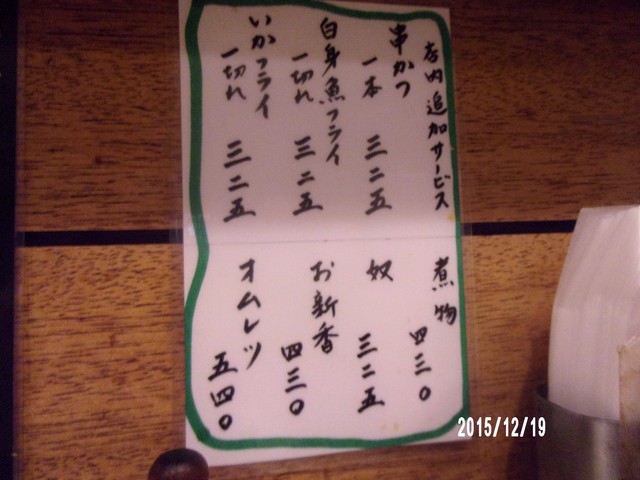 店内追加サービス
串かつ
一本 三二五
白身魚フライ
一切れ 三二五
いかフライ
一切れ 三二五
煮物
四三〇
奴
三二五
お新香
四三〇
オムレツ
五四〇
2015/12/19